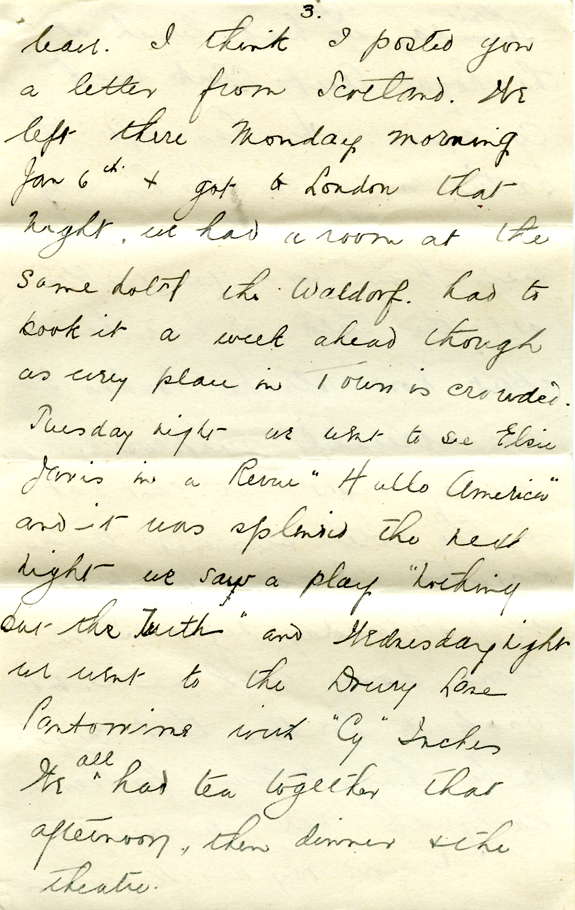 3.
leave. I think I posted you
a letter from Scotland. We
left there Monday morning
Jan 6th & got to London that
night. we had a room at the
same hotel the Waldorf. had to
book it a week ahead though
as every place in Town is crowded.
Tuesday night we went to see Elsie
Janis in a Revue "Hullo America"
and it was splendid the next
night we saw a play "Nothing
but the Truth" and Wednesday night
we went to the Drury Lane
Pantomime with "Cy" Inches
We all had tea together that
afternoon, then dinner & the
theatre.